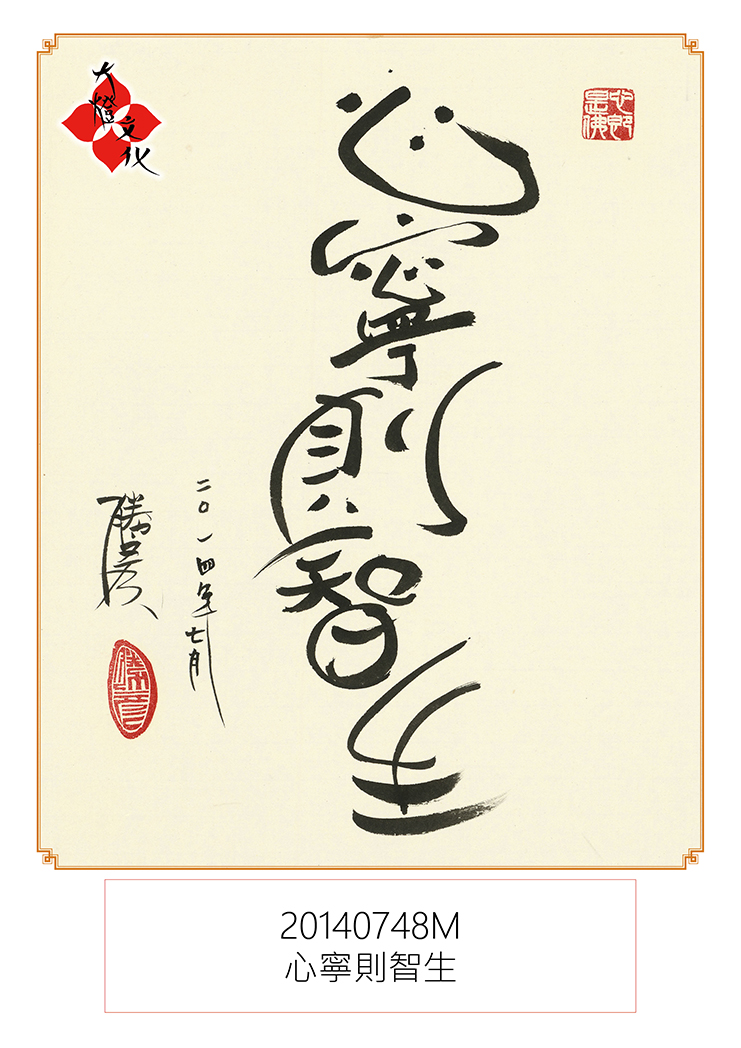 大燈文化
心即是佛
心寧則智生
二〇一四年七月
20140748M
心寧則智生